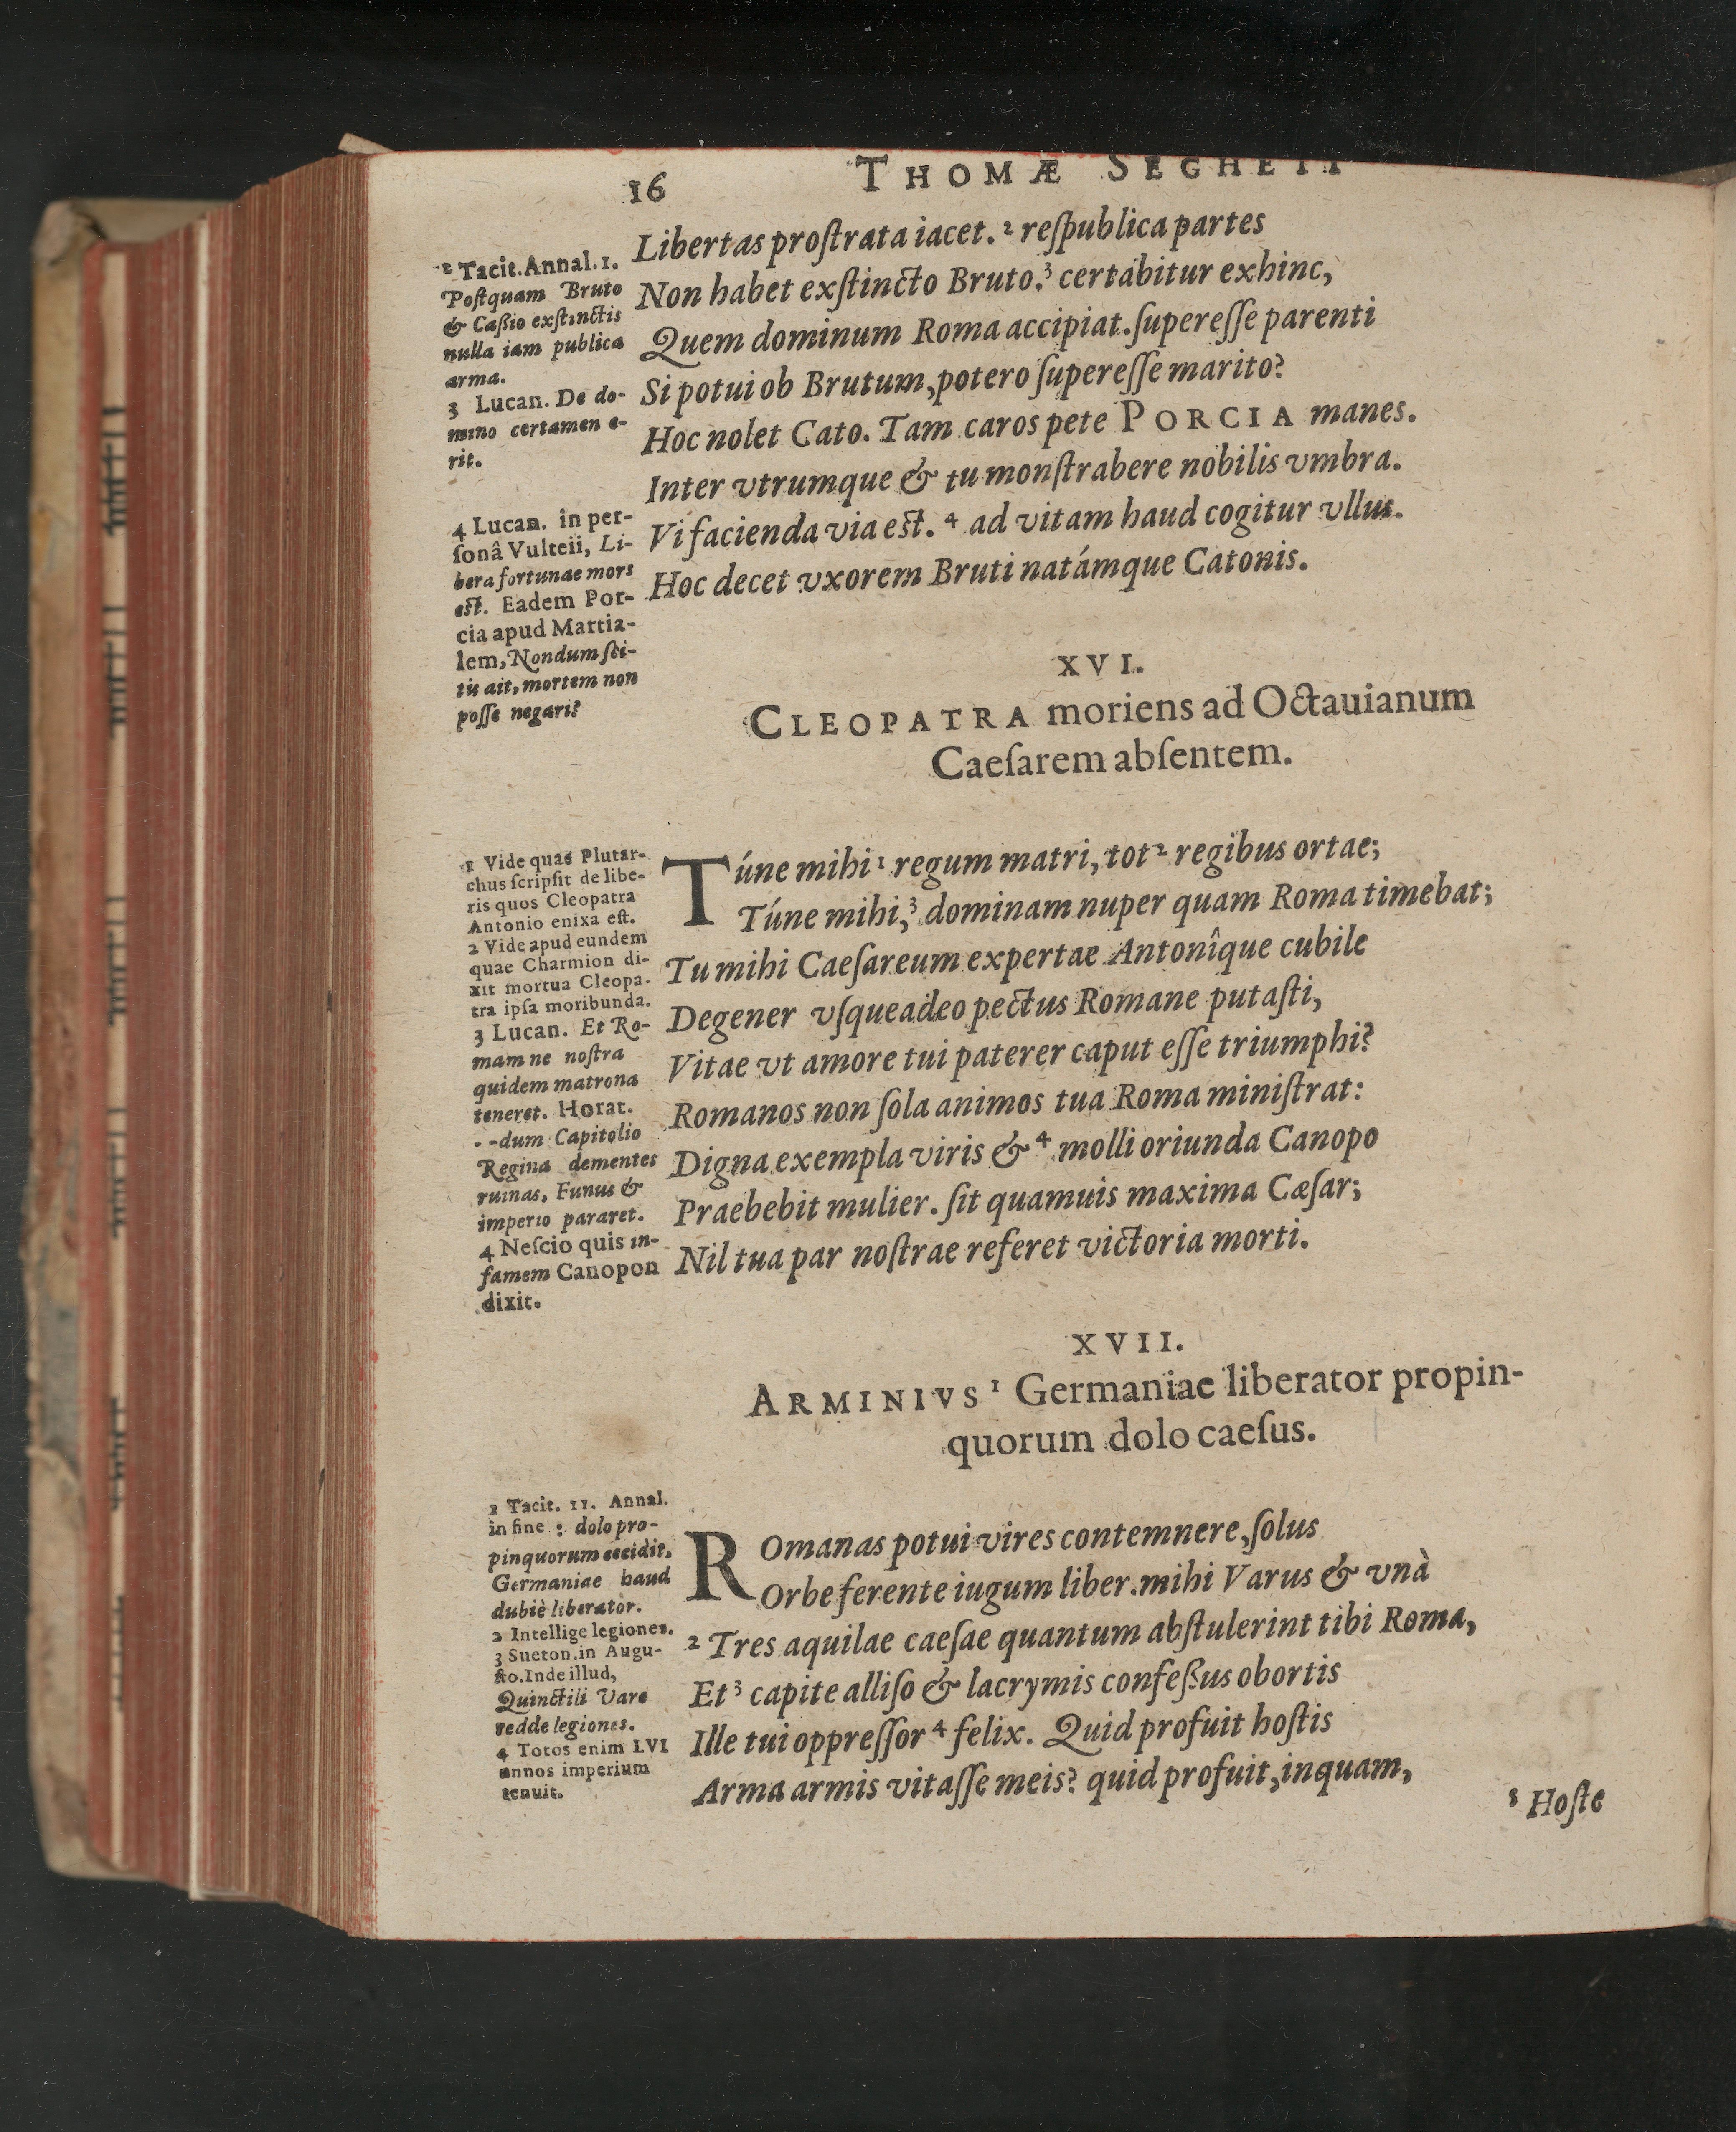 16
THOMÆ SEGHETI
Libertas proſtrata iacet. ² reſpublica partes
Non habet exſtincto Bruto.³ certabitur exhinc,
Quem dominum Roma accipiat. ſupereſſe parenti
Si potui ob Brutum, potero ſupereſſe marito?
Hoc nolet Cato. Tam caros pete PORCIA manes.
Inter vtrumque & tu monſtrabere nobilis vmbra.
Vi facienda via eſt. ⁴ ad vitam haud cogitur vllus.
Hoc decet vxorem Bruti natámque Catonis.
² Tacit. Annal. 1.
Poſtquam Bruto
& Caßio exſtinctis
nulla iam publica
arma.
3 Lucan. De do-
mino certamen e-
rit.
4 Lucan. in per-
ſonâ Vulteii, Li-
bera fortunae mors
eſt. Eadem Por-
cia apud Martia-
lem, Nondum ſci-
tis ait, mortem non
poſſe negari?
XVI.
CLEOPATRA moriens ad Octauianum
Caeſarem abſentem.
Túne mihi ¹ regum matri, tot ² regibus ortae;
Túne mihi,³ dominam nuper quam Roma timebat;
Tu mihi Caeſareum expertae Antonîque cubile
Degener vſqueadeo pectus Romane putaſti,
Vitae vt amore tui paterer caput eſſe triumphi?
Romanos non ſola animos tua Roma miniſtrat:
Digna exempla viris & ⁴ molli oriunda Canopo
Praebebit mulier. ſit quamuis maxima Cæſar;
Nil tua par noſtrae referet victoria morti.
1 Vide quas Plutar-
chus ſcripſit de libe-
ris quos Cleopatra
Antonio enixa eſt.
2 Vide apud eundem
quae Charmion di-
xit mortua Cleopa-
tra ipſa moribunda.
3 Lucan. Et Ro-
mam ne noſtra
quidem matrona
teneret. Horat.
- -dum Capitolio
Regina dementes
ruinas, Funus &
imperio pararet.
4 Neſcio quis in-
famem Canopon
dixit.
XVII.
ARMINIVS ¹ Germaniae liberator propin-
quorum dolo caeſus.
ROmanas potui vires contemnere, ſolus
Orbe ferente iugum liber. mihi Varus & vnà
² Tres aquilae caeſae quantum abſtulerint tibi Roma,
Et ³ capite alliſo & lacrymis confeßus obortis
Ille tui oppreſſor ⁴ felix. Quid profuit hoſtis
Arma armis vitaſſe meis? quid profuit, inquam,
1 Tacit. 11. Annal.
in fine : dolo pro-
pinquorum cecidit,
Germaniae haud
dubiè liberator.
2 Intellige legiones.
3 Sueton. in Augu-
ſto. Inde illud,
Quinctili Vare
redde legiones.
4 Totos enim LVI
annos imperium
tenuit.
⁵ Hoſte